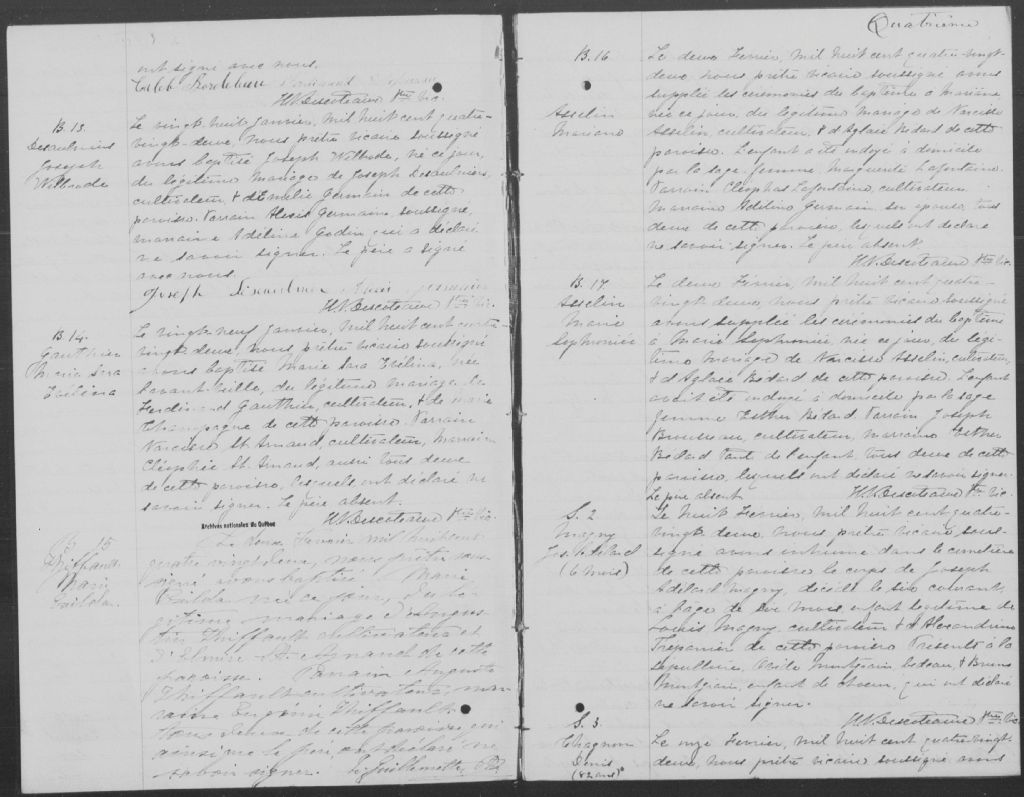 ont signé avec nous.
H.N. Bescoteaux Ptre Vic.
B. 13.
Desaulniers
Joseph
Wilbrode
Le vingt-huit Janvier, mil huit cent quatre-
vingt-deux, nous prêtre vicaire soussigné
avons baptisé Joseph Wilbrode, né ce jour,
du légitime mariage de Joseph Desaulniers,
cultivateur, & d'Emélie Germain de cette
paroisse. Parrain Alexis Germain, soussigné,
marraine Adéline Godin qui a déclaré
ne savoir signer. Le père a signé
avec nous.
Joseph Desaulnier Alexis Germain
H.N. Bescoteaux Ptre Vic.
B. 14.
Gauthier
Marie Sara
Evélina
Le vingt-neuf Janvier, mil huit cent quatre-
vingt-deux, nous prêtre vicaire soussigné
avons baptisé Marie Sara Evélina, née
l'avant-veille, du légitime mariage de
Ferdinand Gauthier, cultivateur, & de Marie
Champagne de cette paroisse. Parrain
Narcisse St. Arnaud, cultivateur, Marraine
Cléophée St. Arnaud, aussi tous deux
de cette paroisse, lesquels ont déclaré ne
savoir signer. Le père absent.
H.N. Bescoteaux Ptre Vic.
Archives nationales du Québec
B. 15
Thiffault
Marie
Le deux Fevrier mil huit cent
quatre vingt deux, nous prêtre sous
signé avons baptisé Marie
née ce jour, du lé
gitime mariage d'Augus
tin Thiffault cultivateur et
d'Elmire St. Arnaud de cette
paroisse. Parrain Auguste
Thiffault cultivateur, mar
raine Eugénie Thiffault
tous deux de cette paroisse, qui
ainsi que le père ont déclaré ne
savoir signer. Guillemette, Ptre
Quatrième
B. 16
Asselin
Mariano
Le deux Fevrier, mil huit cent quatre-vingt-
deux, nous prêtre vicaire soussigné avons
supplée les ceremonies du baptême à
née ce jour, du légitime mariage de Narcisse
Asselin, cultivateur, & d'Aglaé Bédard de cette
paroisse. L'enfant a été ondoyé à domicile
par la sage-femme, Marguerite Lafontaine.
Parrain Cléophas Lafontaine, cultivateur
Marraine Adéline Germain son épouse, tous
deux de cette paroisse, lesquels ont déclaré
ne savoir signer. Le père absent
H.N. Bescoteaux Ptre Vic.
B. 17
Asselin
Marie
Sephoniée
Le deux Février, mil huit cent quatre-
vingt-deux, nous prêtre vicaire soussigné
avons supplée les cérémonies du baptême
à Marie Sephoniée, née ce jour, du légi-
time mariage de Narcisse Asselin, cultivateur,
& d'Aglaé Bédard de cette paroisse. L'enfant
avait été ondoyé à domicile par la sage
femme Esther Bédard. Parrain Joseph
cultivateur, marraine Esther
Bédard tante de l'enfant, tous deux de cette
paroisse, lesquels ont déclaré ne savoir signer.
Le père absent H.N. Bescoteaux Ptre Vic.
S. 2
Magny
Js. Adélard
(6 mois)
Le huit Fevrier, mil huit cent quatre-
vingt deux, nous prêtre vicaire sous-
signé avons inhumé dans le cimetière
de cette paroisse le corps de Joseph
Adélard Magny, décédé le six courant,
à l'age de six mois, enfant légitime de
Louis Magny, cultivateur & d'Alexandrine
Trepanier de cette paroisse. Présents à la
sépulture, bedeau, & Bruno
enfant de choeur, qui ont déclaré
ne savoir signer.
H.N. Bescoteaux Ptre Vic.
S. 3
Chagnon
Denis
(82 ans)
Le onze Fevrier, mil huit cent quatre-vingt-
deux, nous prêtre vicaire soussigné avons